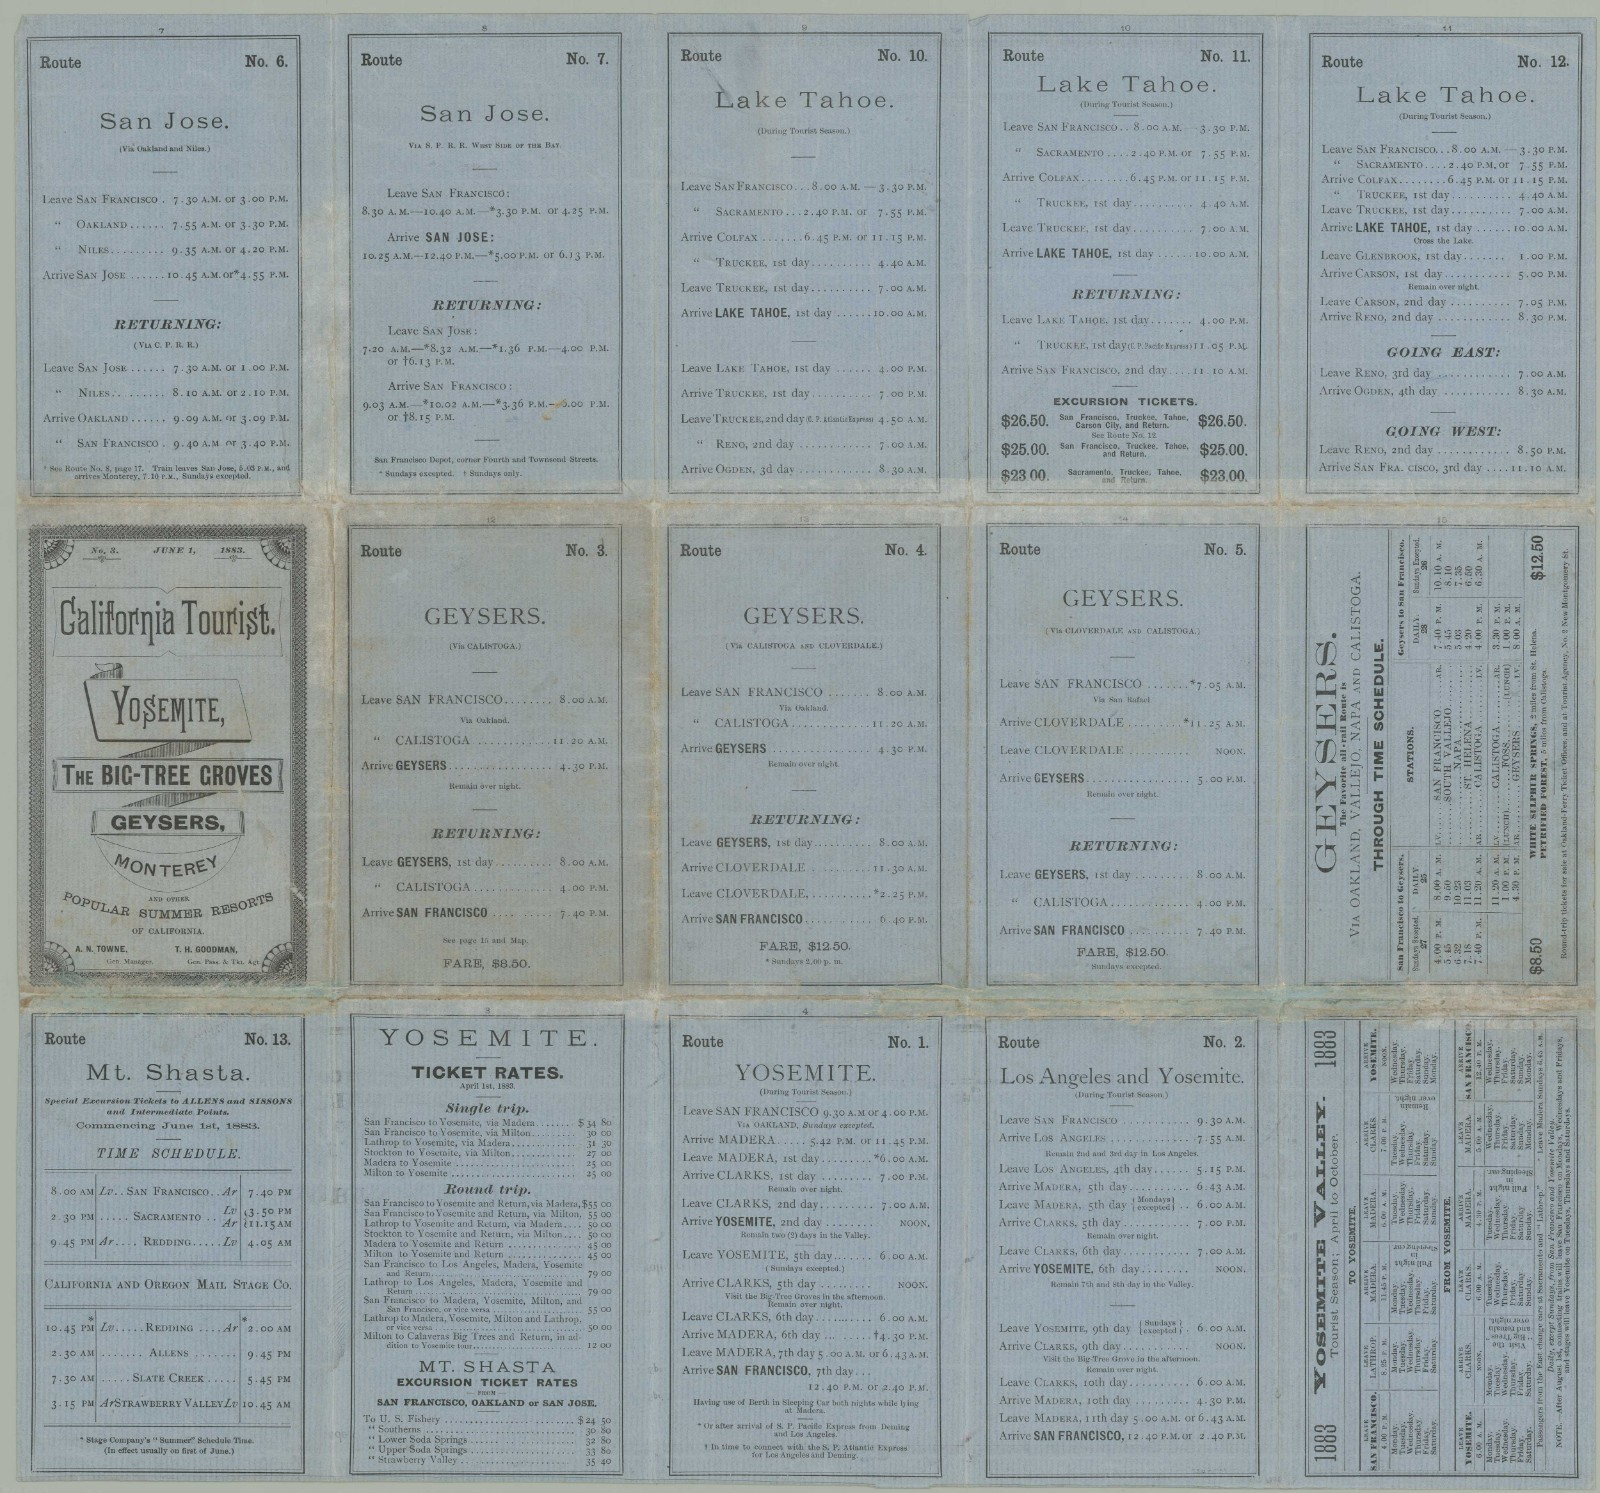 7
Route No. 6.
San Jose.
(Via Oakland and Niles.)
Leave SAN FRANCISCO . 7.30 A.M. or 3.00 P.M.
“ OAKLAND...... 7.55 A.M. or 3.30 P.M.
“ NILES........ 9.35 A.M. or 4.20 P.M.
Arrive SAN JOSE ...... 10.45 A.M. or *4.55 P.M.
RETURNING:
(VIA C. P. R. R.)
Leave SAN JOSE ...... 7.30 A.M. or 1.00 P.M.
“ NILES.. ...... 8.10 A.M. or 2.10 P.M.
Arrive OAKLAND ...... 9.09 A.M. or 3.09 P.M.
“ SAN FRANCISCO . 9.40 A.M. or 3.40 P.M.
* See Route No. 8, page 17. Train leaves San Jose, 5.03 P.M., and
arrives Monterey, 7.10 P.M., Sundays excepted.
8
Route No. 7.
San Jose.
VIA S. P. R. R. WEST SIDE OF THE BAY.
Leave SAN FRANCISCO:
8.30 A.M.—10.40 A.M.—*3.30 P.M. or 4.25 P.M.
Arrive SAN JOSE:
10.25 A.M.—12.40 P.M.—*5.00 P.M. or 6.13 P.M.
RETURNING:
Leave SAN JOSE:
7.20 A.M.—*8.32 A.M.—*1.36 P.M.—4.00 P.M.
or †6.13 P.M.
Arrive SAN FRANCISCO:
9.03 A.M.—*10.02 A.M.—*3.36 P.M.—6.00 P.M.
or †8.15 P.M.
San Francisco Depot, corner Fourth and Townsend Streets.
* Sundays excepted. † Sundays only.
9
Route No. 10.
Lake Tahoe.
(During Tourist Season.)
Leave SAN FRANCISCO...8.00 A.M. — 3.30 P.M.
“ SACRAMENTO ...2.40 P.M. or 7.55 P.M.
Arrive COLFAX .......6.45 P.M. or 11.15 P.M.
“ TRUCKEE, 1st day.......... 4.40 A.M.
Leave TRUCKEE, 1st day.......... 7.00 A.M.
Arrive LAKE TAHOE, 1st day ......10.00 A.M.
Leave LAKE TAHOE, 1st day ...... 4.00 P.M.
Arrive TRUCKEE, 1st day.......... 7.00 P.M.
Leave TRUCKEE, 2nd day (C. P. Atlantic Express) 4.50 A.M.
“ RENO, 2nd day ............ 7.00 A.M.
Arrive OGDEN, 3d day ............ 8.30 A.M.
10
Route No. 11.
Lake Tahoe.
(During Tourist Season.)
Leave SAN FRANCISCO.. 8.00 A.M.—3.30 P.M.
“ SACRAMENTO ....2.40 P.M. or 7.55 P.M.
Arrive COLFAX........6.45 P.M. or 11.15 P.M.
“ TRUCKEE, 1st day.......... 4.40 A.M.
Leave TRUCKEE, 1st day.......... 7.00 A.M.
Arrive LAKE TAHOE, 1st day ......10.00 A.M.
RETURNING:
Leave LAKE TAHOE, 1st day....... 4.00 P.M.
“ TRUCKEE, 1st day (C. P. Pacific Express) 11.05 P.M.
Arrive SAN FRANCISCO, 2nd day...11.10 A.M.
EXCURSION TICKETS.
$26.50. San Francisco, Truckee, Tahoe, $26.50.
Carson City, and Return.
See Route No. 12.
$25.00. San Francisco, Truckee, Tahoe, $25.00.
and Return.
$23.00. Sacramento, Truckee, Tahoe, $23.00.
and Return.
11
Route No. 12.
Lake Tahoe.
(During Tourist Season.)
Leave SAN FRANCISCO...8.00 A.M.—3.30 P.M.
“ SACRAMENTO....2.40 P.M. or 7.55 P.M.
Arrive COLFAX........6.45 P.M. or 11.15 P.M.
“ TRUCKEE, 1st day.......... 4.40 A.M.
Leave TRUCKEE, 1st day.......... 7.00 A.M.
Arrive LAKE TAHOE, 1st day ......10.00 A.M.
Cross the Lake.
Leave GLENBROOK, 1st day........ 1.00 P.M.
Arrive CARSON, 1st day........... 5.00 P.M.
Remain over night.
Leave CARSON, 2nd day .......... 7.05 P.M.
Arrive RENO, 2nd day ............ 8.30 P.M.
GOING EAST:
Leave RENO, 3rd day ............ 7.00 A.M.
Arrive OGDEN, 4th day ........... 8.30 A.M.
GOING WEST:
Leave RENO, 2nd day ............ 8.50 P.M.
Arrive SAN FRA CISCO, 3rd day ....11.10 A.M.
No. 3. JUNE 1, 1883.
California Tourist.
YOSEMITE,
THE BIG-TREE GROVES
GEYSERS,
MONTEREY
AND OTHER
POPULAR SUMMER RESORTS
OF CALIFORNIA.
A. N. TOWNE, T. H. GOODMAN,
Gen. Manager. Gen. Pass. & Tkt. Agt.
12
Route No. 3.
GEYSERS.
(Via CALISTOGA.)
Leave SAN FRANCISCO........ 8.00 A.M.
Via Oakland.
“ CALISTOGA ............11.20 A.M.
Arrive GEYSERS................ 4.30 P.M.
Remain over night.
RETURNING:
Leave GEYSERS, 1st day......... 8.00 A.M.
“ CALISTOGA ............ 4.00 P.M.
Arrive SAN FRANCISCO .......... 7.40 P.M.
See page 15 and Map.
FARE, $8.50.
13
Route No. 4.
GEYSERS.
(Via CALISTOGA AND CLOVERDALE.)
Leave SAN FRANCISCO ....... 8.00 A.M.
Via Oakland.
“ CALISTOGA............11.20 A.M.
Arrive GEYSERS ............... 4.30 P.M.
Remain over night.
RETURNING:
Leave GEYSERS, 1st day......... 8.00 A.M.
Arrive CLOVERDALE ..........11.30 A.M.
Leave CLOVERDALE,..........*2.25 P.M.
Arrive SAN FRANCISCO .......... 6.40 P.M.
FARE, $12.50.
* Sundays 2.00 p. m.
14
Route No. 5.
GEYSERS.
(Via CLOVERDALE AND CALISTOGA.)
Leave SAN FRANCISCO .......*7.05 A.M.
Via San Rafael.
Arrive CLOVERDALE .........*11.25 A.M.
Leave CLOVERDALE .......... NOON.
Arrive GEYSERS................ 5.00 P.M.
Remain over night.
RETURNING:
Leave GEYSERS, 1st day ......... 8.00 A.M.
“ CALISTOGA............ 4.00 P.M.
Arrive SAN FRANCISCO .......... 7.40 P.M.
FARE, $12.50.
* Sundays excepted.
15
GEYSERS.
The Favorite all-rail Route is
Via OAKLAND, VALLEJO, NAPA AND CALISTOGA.
THROUGH TIME SCHEDULE.
San Francisco to Geysers. STATIONS. Geysers to San Francisco.
Sundays Excepted. 27 DAILY 25 DAILY. 28 Sundays Excepted. 26
4.00 P. M. 8.00 A. M. LV. SAN FRANCISCO AR. 7.40 P. M. 10.10 A. M.
5.45 9.50 SOUTH VALLEJO 5.45 8.10
6.32 10.23 NAPA 5.03 7.35
7.18 11.03 ST. HELENA 4.20 6.50
7.40 P. M. 11.20 A. M. AR. CALISTOGA LV. 4.00 P. M. 6.30 A. M.
11.20 A. M. LV. CALISTOGA AR. 3.30 P. M.
1.00 P. M. (LUNCH) FOSS (LUNCH) 1.00 P. M.
4.30 P. M. AR. GEYSERS LV. 8.00 A. M.
$8.50 WHITE SULPHUR SPRINGS, 2 miles from St. Helena. $12.50
PETRIFIED FOREST, 5 miles from Calistoga.
Round-trip tickets for sale at Oakland-Ferry Ticket Offices, and at Tourist Agency, No. 2 New Montgomery St.
Route No. 13.
Mt. Shasta.
Special Excursion Tickets to ALLENS and SISSONS
and Intermediate Points.
Commencing June 1st, 1883.
TIME SCHEDULE.
8.00 AM Lv.. SAN FRANCISCO.. Ar 7.40 PM
2.30 PM ..... SACRAMENTO .. Lv 3.50 PM
Ar 11.15 AM
9.45 PM Ar.... REDDING..... Lv 4.05 AM
CALIFORNIA AND OREGON MAIL STAGE CO.
*10.45 PM Lv.....REDDING ....Ar *2.00 AM
2.30 AM ....... ALLENS ....... 9.45 PM
7.30 AM .....SLATE CREEK..... 5.45 PM
3.15 PM Ar STRAWBERRY VALLEY Lv 10.45 AM
* Stage Company's “Summer” Schedule Time.
(In effect usually on first of June.)
3
YOSEMITE.
TICKET RATES.
April 1st, 1883.
Single trip.
San Francisco to Yosemite, via Madera....... $34 80
San Francisco to Yosemite, via Milton....... 30 00
Lathrop to Yosemite, via Madera............ 31 30
Stockton to Yosemite, via Milton............ 27 00
Madera to Yosemite ....................... 25 00
Milton to Yosemite ........................ 25 00
Round trip.
San Francisco to Yosemite and Return, via Madera, $55 00
San Francisco to Yosemite and Return, via Milton, 55 00
Lathrop to Yosemite and Return, via Madera.... 50 00
Stockton to Yosemite and Return, via Milton.... 50 00
Madera to Yosemite and Return .............. 45 00
Milton to Yosemite and Return .............. 45 00
San Francisco to Los Angeles, Madera, Yosemite
and Return............................ 79 00
Lathrop to Los Angeles, Madera, Yosemite and
Return................................ 79 00
San Francisco to Madera, Yosemite, Milton, and
San Francisco, or vice versa .............. 55 00
Lathrop to Madera, Yosemite, Milton and Lathrop,
or vice versa ........................... 50 00
Milton to Calaveras Big Trees and Return, in ad-
dition to Yosemite tour.................. 12 00
MT. SHASTA
EXCURSION TICKET RATES
— FROM —
SAN FRANCISCO, OAKLAND or SAN JOSE.
To U. S. Fishery ........................ $24 50
“ Southerns ........................... 30 80
“ Lower Soda Springs ................... 32 80
“ Upper Soda Springs ................... 33 80
“ Strawberry Valley...................... 35 40
4
Route No. 1.
YOSEMITE.
(During Tourist Season.)
Leave SAN FRANCISCO 9.30 A.M or 4.00 P.M.
VIA OAKLAND, Sundays excepted.
Arrive MADERA..... 5.42 P.M. or 11.45 P.M.
Leave MADERA, 1st day........*6.00 A.M.
Arrive CLARKS, 1st day......... 7.00 P.M.
Remain over night.
Leave CLARKS, 2nd day......... 7.00 A.M.
Arrive YOSEMITE, 2nd day...... NOON.
Remain two (2) days in the Valley.
Leave YOSEMITE, 5th day...... 6.00 A.M.
(Sundays excepted.)
Arrive CLARKS, 5th day ........ NOON.
Visit the Big-Tree Groves in the afternoon.
Remain over night.
Leave CLARKS, 6th day.......... 6.00 A.M.
Arrive MADERA, 6th day ... ....†4.30 P.M.
Leave MADERA, 7th day 5.00 A.M. or 6.43 A.M.
Arrive SAN FRANCISCO, 7th day...
12.40 P.M. or 2.40 P.M.
Having use of Berth in Sleeping Car both nights while lying
at Madera.
* Or after arrival of S. P. Pacific Express from Deming
and Los Angeles.
† In time to connect with the S. P. Atlantic Express
for Los Angeles and Deming.
Route No. 2.
Los Angeles and Yosemite.
(During Tourist Season.)
Leave SAN FRANCISCO ......... 9.30 A.M.
Arrive LOS ANGELES .......... 7.55 A.M.
Remain 2nd and 3rd day in Los Angeles.
Leave LOS ANGELES, 4th day...... 5.15 P.M.
Arrive MADERA, 5th day ......... 6.43 A.M.
Leave MADERA, 5th day {Mondays excepted}.. 6.00 A.M.
Arrive CLARKS, 5th day........... 7.00 P.M.
Remain over night.
Leave CLARKS, 6th day........... 7.00 A.M.
Arrive YOSEMITE, 6th day........ NOON.
Remain 7th and 8th day in the Valley.
Leave YOSEMITE, 9th day {Sundays excepted}.. 6.00 A.M.
Arrive CLARKS, 9th day.......... NOON.
Visit the Big-Tree Grove in the afternoon.
Remain over night.
Leave CLARKS, 10th day.......... 6.00 A.M.
Arrive MADERA, 10th day ........ 4.30 P.M.
Leave MADERA, 11th day 5.00 A.M. or 6.43 A.M.
Arrive SAN FRANCISCO, 12.40 P.M. or 2.40 P.M.
1883 YOSEMITE VALLEY. 1883
Tourist Season; April to October.
TO YOSEMITE.
LEAVE SAN FRANCISCO. LEAVE LATHROP. ARRIVE MADERA. LEAVE MADERA. ARRIVE CLARKS. ARRIVE YOSEMITE.
FROM YOSEMITE.
LEAVE YOSEMITE. ARRIVE CLARKS. LEAVE CLARKS. ARRIVE MADERA. LEAVE MADERA. ARRIVE SAN FRANCISCO.